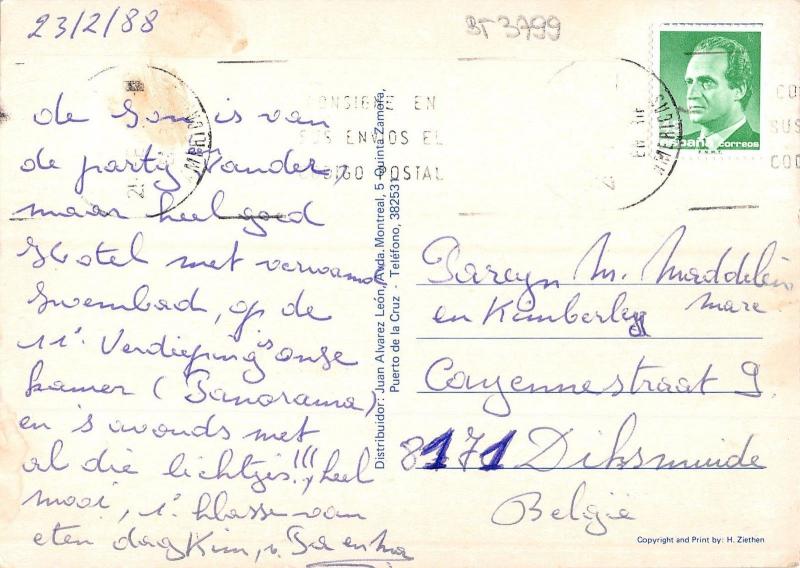 23/2/88
BT 3799
de zon is van
de party Vander,
maar heel goed
Hotel met verwarmd
zwembad, op de
11e Verdieping is onze
kamer (Panorama)
en 's avonds met
al die lichtjes!!!, heel
mooi, 1e klasse van
eten dag Kim, v. Pa en Ma
CONSIGNE EN
SUS ENVIOS EL
CODIGO POSTAL
Distribuidor: Juan Alvarez León, Avda. Montreal, 5 Quinta Zamora,
Puerto de la Cruz - Teléfono, 382531
españa correos
F.N.M.T.
Pareyn M. Maddelein
en Kimberley Marc
Cayennestraat 9.
8171 Diksmuide
België
Copyright and Print by: H. Ziethen